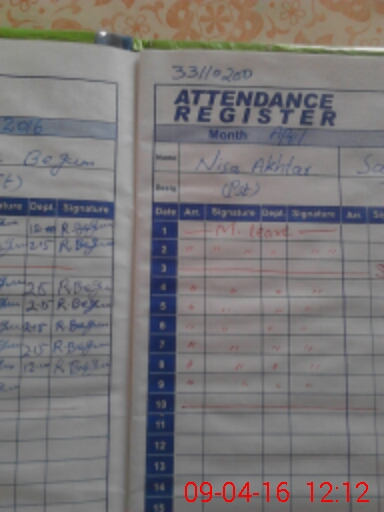 2016
Begum
Signature Dept. Signature
12- R. Begum
2-15 R. Begum
2-15 R. Begum
2-15 R. Begum
2-15 R. Begum
2-15 R. Begum
12- R. Begum
33110200
ATTENDANCE
REGISTER
Month April
Name Nisa Akhtar
Desig
Date Arr. Signature Dept. Signature Arr.
1 M. leave
2 " " " "
3
4 " " " "
5 " " " "
6 " " " "
7 " " " "
8 " " " "
9 " " " "
10
11
12
13
14
15
09-04-16 12:12